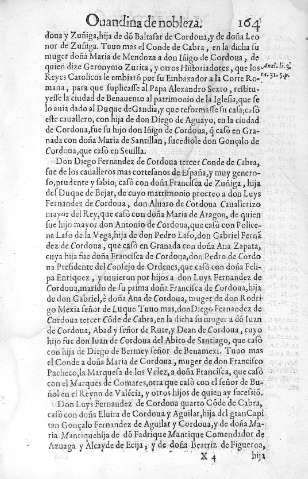 Quandina de nobleza. 164
dona y Zuñiga, hija de dõ Baltasar de Cordoua, y de doña Leo
nor de Zuñiga. Tuuo mas el Conde de Cabra, en la dicha su
muger doña Maria de Mendoza a don Iñigo de Cordoua, de
quien dize Geronymo Zurita, y otros Historiadores, que los
Reyes Catolicos le embiarõ por su Embaxador a la Corte Ro
mana, para que suplicasse al Papa Alexandro Sexto, restitu
yesse la ciudad de Benauento al patrimonio de la Iglesia, que se
lo auia dado al Duque de Gandia, y que reformasse su casa, casó
este cauallero, con hija de don Diego de Aguayo, en la ciudad
de Cordoua, fue su hijo don Iñigo de Cordoua, q̃ casó en Gra
nada con doña Maria de Santillan, sucediole don Gonçalo de
Cordoua, que casó en Seuilla.
Don Diego Fernandez de Cordoua tercer Conde de Cabra,
fue de los caualleros mas cortesanos de España, y muy genero-
so, prudente y sabio, casó con doña Francisca de Zuñiga, hija
del Duque de Bejar, de cuyo matrimonio procreo a don Luys
Fernandez de Cordoua, don Aluaro de Cordoua Cauallerizo
mayor del Rey, que casó con doña Maria de Aragon, de quien
fue hijo mayor don Antonio de Cordoua, que casó con Police-
na Laso de la Vega, hija de don Pedro Laso, don Gabriel Fernã
dez de Cordoua, que casó en Granada con doña Ana Zapata,
cuya hija fue doña Francisca de Cordoua, don Pedro de Cordo
ua Presidente del Consejo de Ordenes, que casó con doña Feli-
pa Enriquez, y tuuieron por hijos a don Luys Fernandez de
Cordoua, marido de su prima doña Francisca de Cordoua, hija
de don Gabriel, è doña Ana de Cordoua, muger de don Rodri
go Mexia señor de Tuuo mas, don Diego Fernandez de
Cordoua tercer Cõde de Cabra, en la dicha su muger a dõ Iuan
de Cordoua, Abad y señor de Rute, y Dean de Cordoua, cuyo
hijo fue don Iuan de Cordoua del Abito de Santiago, que casó
con hija de Diego de Bernuy señor de Benamexi. Tuuo mas
el Conde a doña Maria de Cordoua, muger de don Francisco
Pacheco, la Marquesa de los Velez, a doña Francisca, que casó
con el Marques de Comares, otra que casó con el señor de Bu-
ñol en el Reyno de Valẽcia, y otros hijos de quien ay sucessiõ.
Don Luys Fernandez de Cordoua quarto Cõde de Cabra,
casó con doña Eluira de Cordoua y Aguilar, hija del gran Capi
tan Gonçalo Fernandez de Aguilar y Cordoua, y de doña Ma-
ria Manrique hija de dõ Fadrique Manrique Comendador de
Azuaga y Alcayde de Ecija, y de doña Beatriz de Figueroa,
X 4 hija